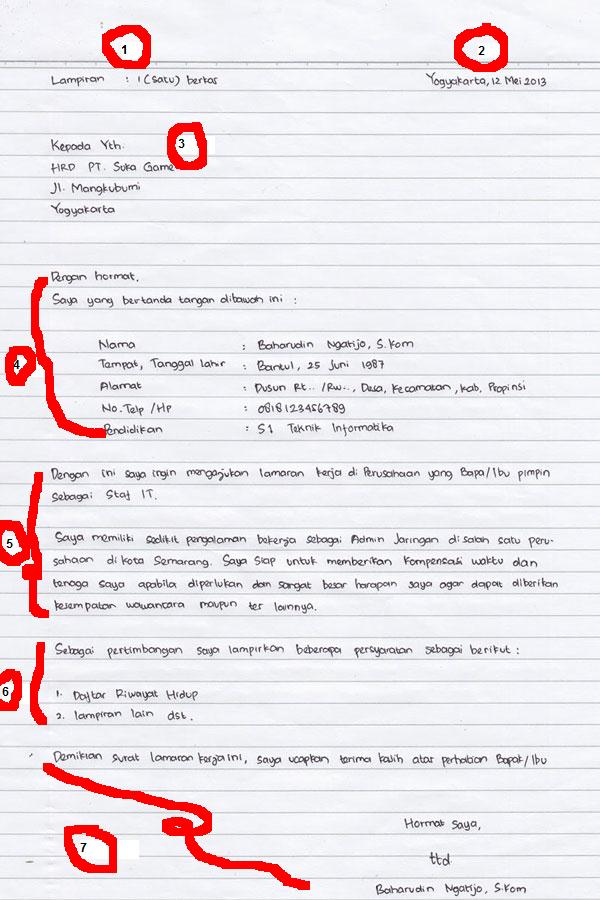 1
2
Lampiran : 1 (satu) berkas
Yogyakarta, 12 Mei 2013
Kepada Yth.
3
HRD PT. Suka Game
Jl. Mangkubumi
Yogyakarta
Dengan hormat,
Saya yang bertanda tangan dibawah ini :
Nama : Baharudin Ngatijo, S.Kom
4
Tempat, Tanggal lahir : Bantul, 25 Juni 1987
Alamat : Dusun Rt.. /Rw.., Desa, Kecamatan, kab, Propinsi
No.Telp /Hp : 0818123456789
Pendidikan : S1 Teknik Informatika
Dengan ini saya ingin mengajukan lamaran kerja di Perusahaan yang Bapa/Ibu pimpin
sebagai Staf IT.
5
Saya memiliki sedikit pengalaman bekerja sebagai Admin Jaringan disalah satu peru-
sahaan di kota Semarang. Saya siap untuk memberikan kompensasi waktu dan
tenaga saya apabila diperlukan dan sangat besar harapan saya agar dapat diberikan
kesempatan wawancara maupun tes lainnya.
Sebagai pertimbangan saya lampirkan beberapa persyaratan sebagai berikut :
6
1. Daftar Riwayat Hidup
2. lampiran lain dst.
Demikian surat lamaran kerja ini, saya ucapkan terima kasih atas perhatian Bapak/Ibu
Hormat saya,
7
ttd
Baharudin Ngatijo, S.Kom